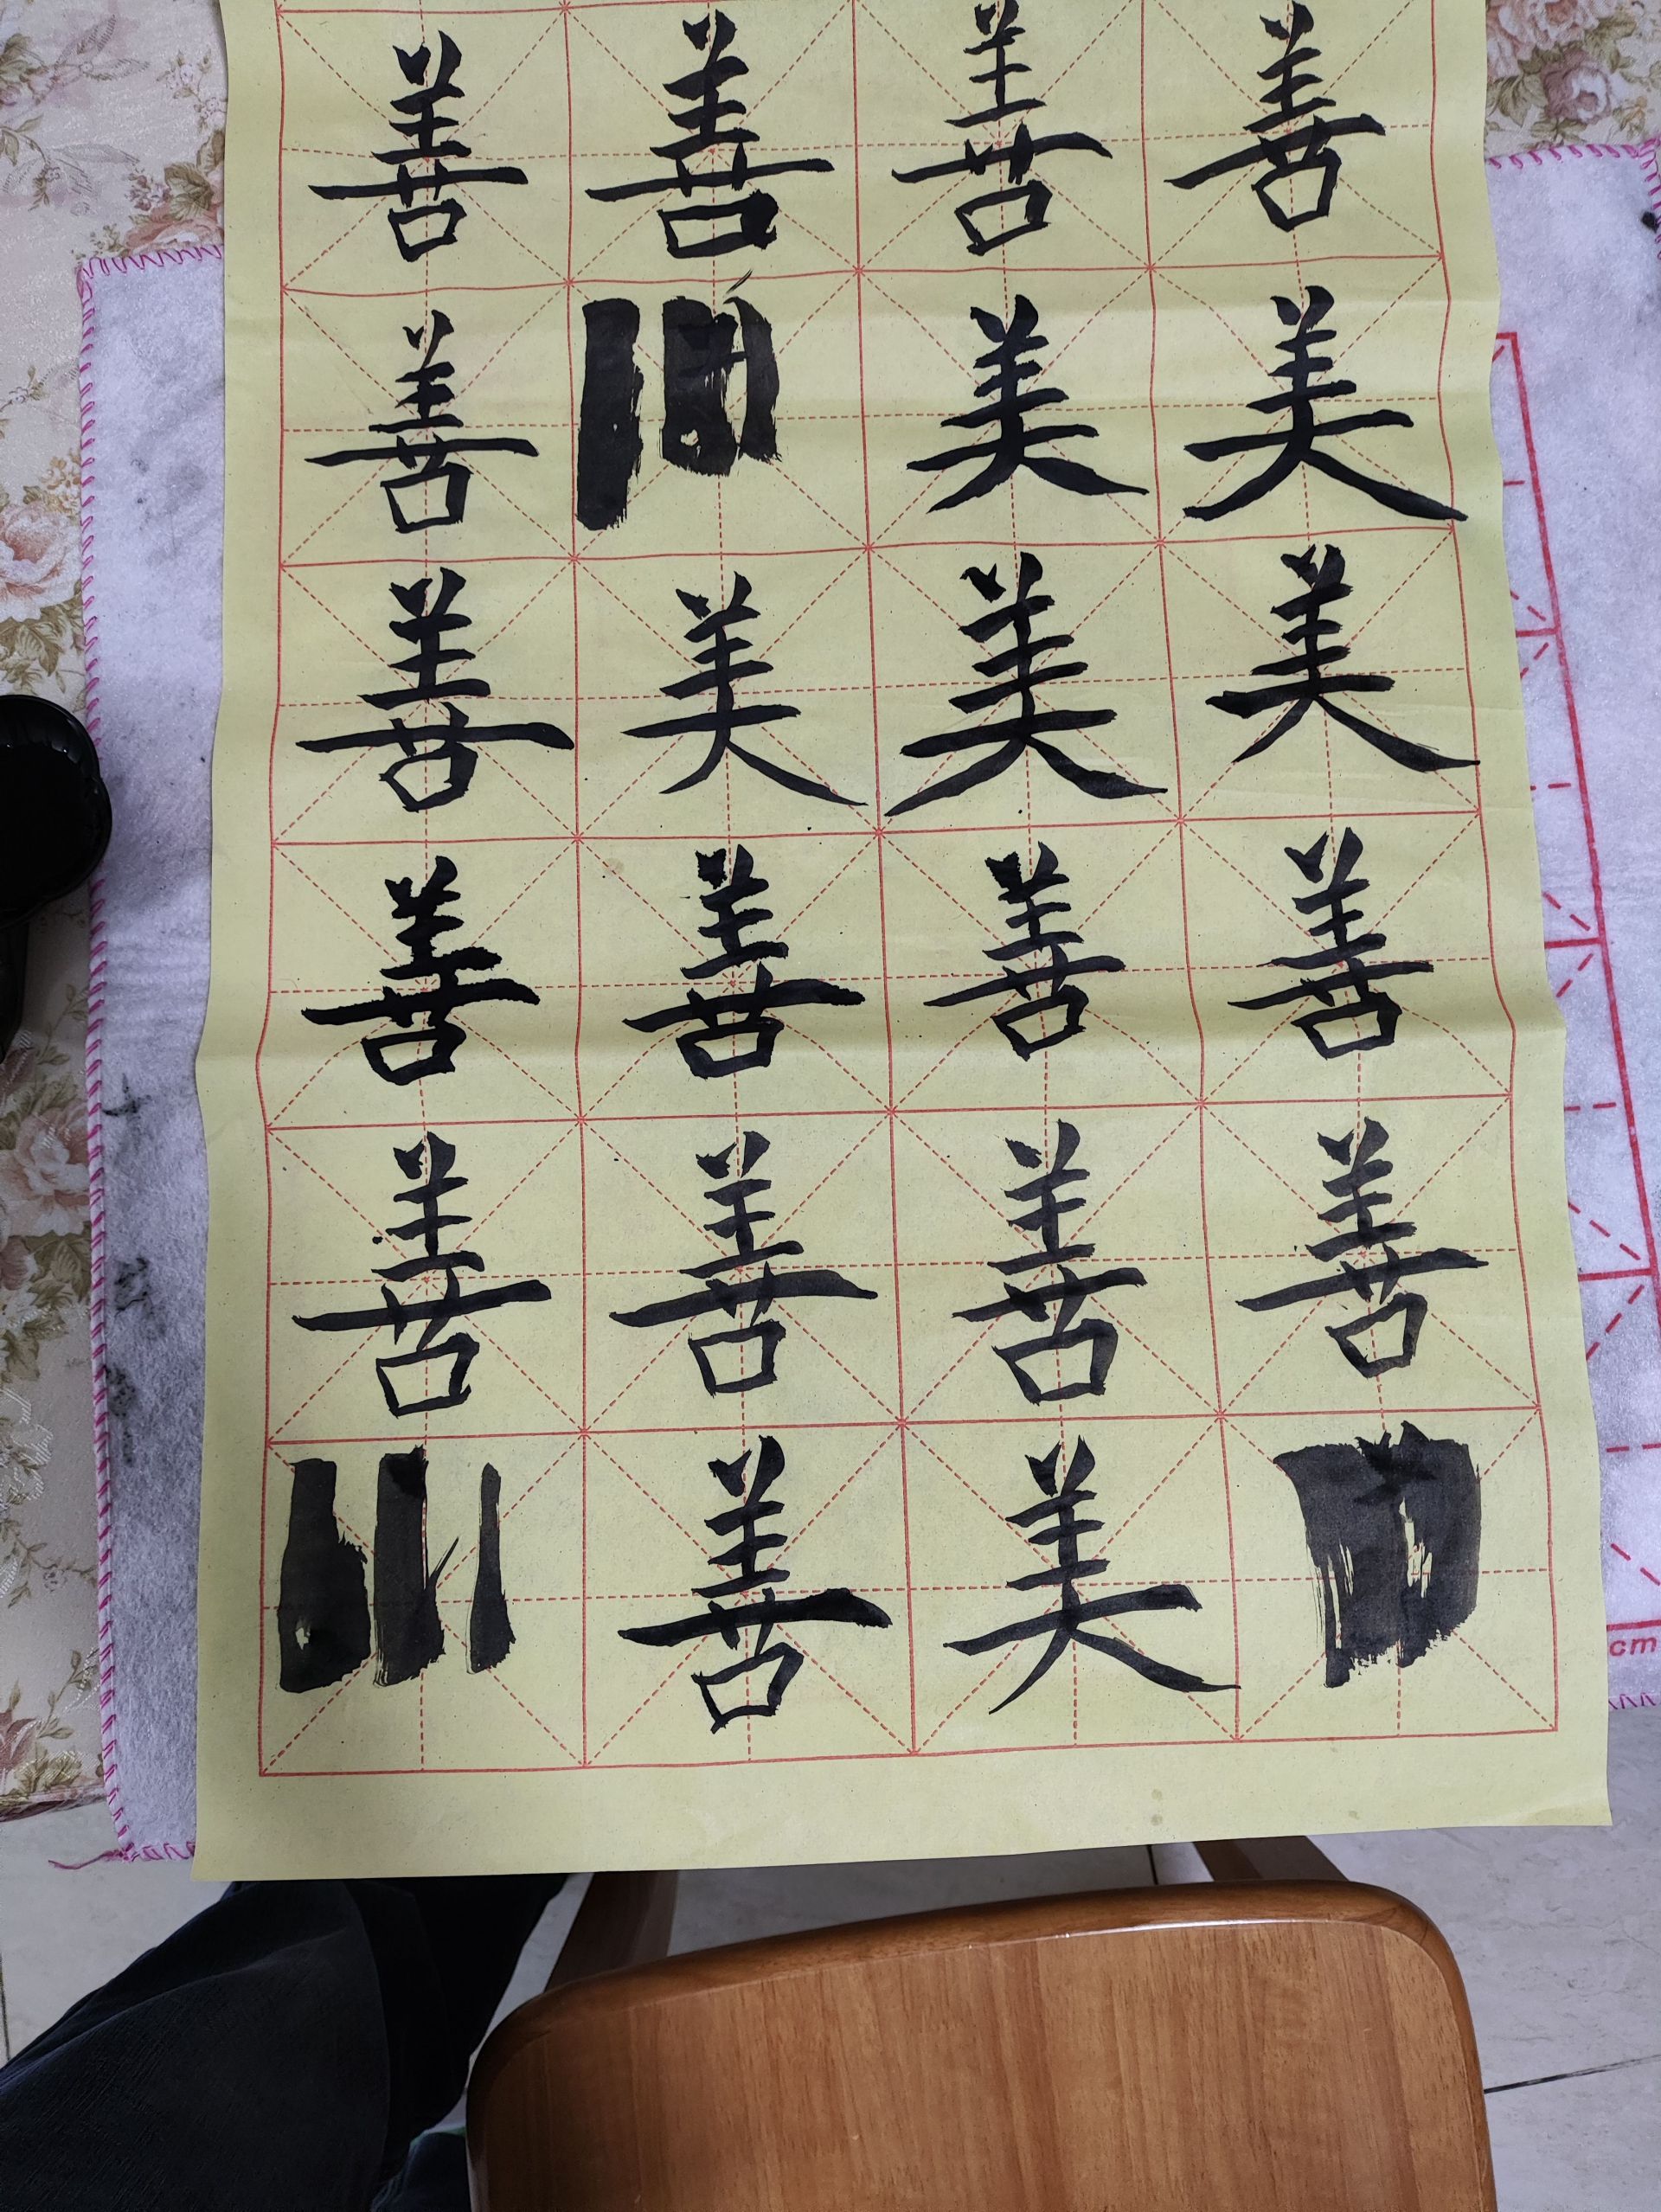 善善善善
善美美
善美美美
善善善善
善善善善
善美
cm